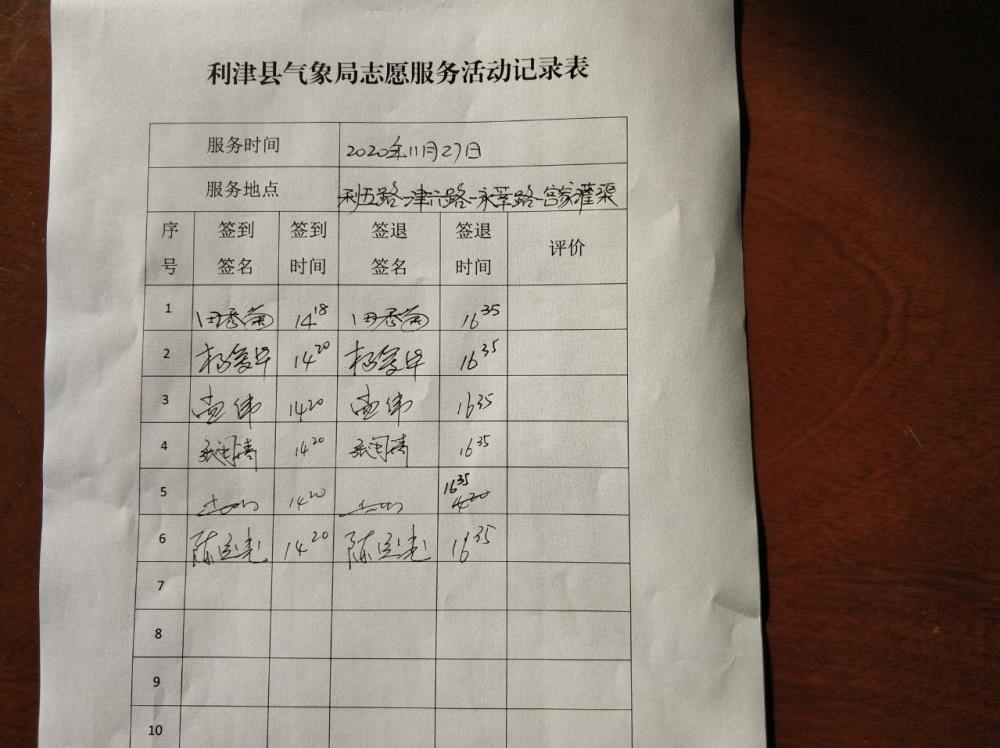 利津县气象局志愿服务活动记录表
服务时间 2020年11月27日
服务地点 利五路-津六路-永莘路-宫家灌渠
序号 签到签名 签到时间 签退签名 签退时间 评价
1 田香菊 14 18 田香菊 16 35
2 14 20 16 35
3 伟 14 20 伟 16 35
4 14 20 16 35
5 14 20 16 35
6 陈 14 20 陈 16 35
7
8
9
10